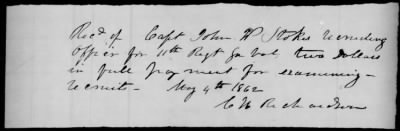 Recd of Capt John W Stokes recruiting
Officer for 10th Regt Ga Vol, two Dollars
in full payment for examining
recruit - May 4th 1862
C W Richardson